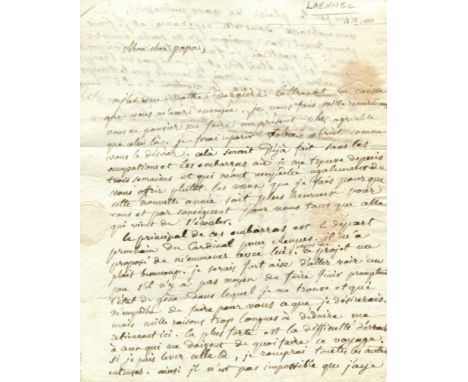 LAENNEC
Mon cher papa,
votre dernière lettre et la caisse
que vous m'avez envoyée. je vous fais mille remerciemens
vous ne pouviez me faire un présent plus agréable
que celui là. je ferai
vous le désirez. cela serait déjà fait sans les
occupations et les embarras où je me trouve depuis
trois semaines et qui m'ont empêché également de
vous offrir plutôt les voeux que je fais pour que
cette nouvelle année soit plus heureuse pour
vous et par conséquent pour nous tous que celle
qui vient de s'écouler.
le principal de ces embarras est le départ
prochain du Cardinal pour Rennes. il m'a
proposé de m'emmener avec lui. ce projet me
plait beaucoup. je serais fort aise d'aller voir un
peu s'il n'y a pas moyen de faire finir promptement
l'état de gêne dans lequel je me trouve et qui
m'empêche de faire pour vous ce que je désirerais.
mais mille raisons trop longues à déduire me
retiennent ici. la plus forte est la difficulté d'arracher
à ceux qui me doivent de quoi faire ce voyage.
si je puis lever celle là, je romprai toutes les autres
entraves. ainsi il n'est pas impossible que j'aye